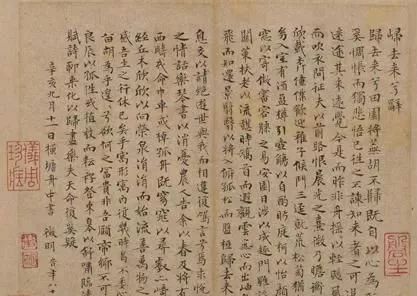 歸去來兮辭
歸去來兮田園將蕪胡不歸既自以心為
奚惆悵而獨悲悟已往之不諫知來者之可追
迷途其未遠覺今是而昨非舟搖搖以輕颺風
而吹衣問征夫以前路恨晨光之熹微乃瞻衡
欣載奔僮僕歡迎稚子候門三逕就荒松菊猶
幼入室有酒盈罇引壺觴以自酌眄庭柯以怡顏
窗以寄傲審容膝之易安園日涉以成趣門雖
關策扶老以流憩時矯首而遐觀雲無心而出岫
飛而知還景翳翳以將入撫孤松而盤桓歸去來
息交以請絕遊世與我而相遺復駕言兮焉求悅
之情話樂琴書以消憂農人告余以春及將有
西疇或命巾車或棹孤舟既窈窕以尋壑亦
經丘木欣欣以向榮泉涓涓而始流善萬物之
感吾生之行休已矣乎寓形宇內復幾時曷不委心
胡為乎遑遑兮欲何之富貴非吾願帝鄉不可
良辰以孤往或植杖而耘耔登東皋以舒嘯臨清
賦詩聊乘化以歸盡樂夫天命復奚疑
辛亥九月十一日橫塘舟中書 徵明